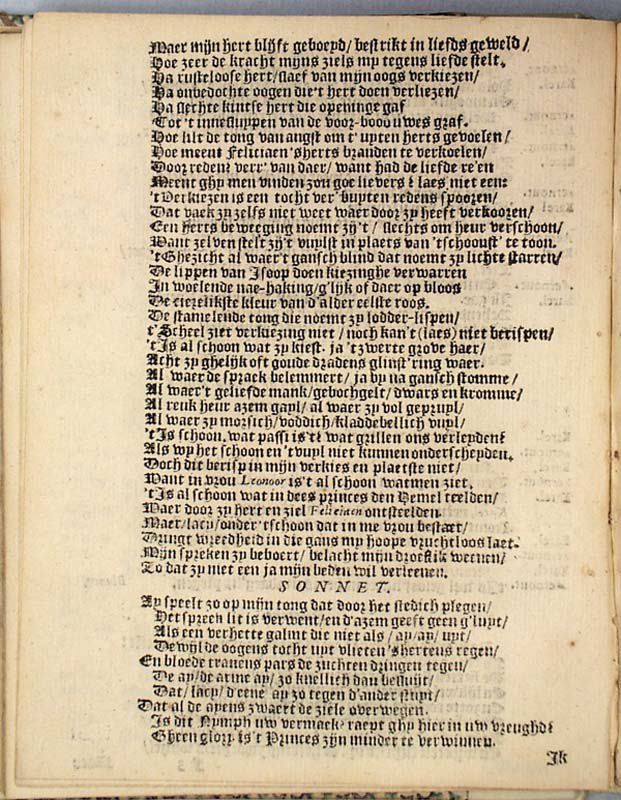 Maer mijn hert blijft geboeyd/ bestrikt in liefds geweld/
Hoe zeer de kracht mijns ziels my tegens liefde stelt.
Ha rusteloose hert/ slaef van mijn oogs verkiezen/
Ha onbedochte oogen die't hert doen verliezen/
Ha slechte kintse hert die openinge gaf
Tot 't innesluppen van de voor-boo uwes graf.
Hoe lilt de tong van angst om t'uyten herts gevoelen/
Hoe meent Feliciaen 'sherts branden te verkoelen/
Door reden? verr' van daer/ want had de liefde re'en
Meent ghy men vinden zou goe lievers? laes niet een:
't Verkiezen is een tocht ver' buyten redens spooren/
Dat vaek zy zelfs niet weet waer door zy heeft verkooren/
Een herts beweeging noemt zy't/ slechts om heur verschoon/
Want zelven stelt zy't vuylst in plaets van 'tschoonst' te toon.
't Ghezicht al waer't gansch blind dat noemt zy lichte starren/
De lippen van Isoop doen kiezinghe verwarren
In woelende nae-haking/ g'lijk of daer op bloos
De cierelikste kleur van d'alder eelste roos.
De stamelende tong die noemt zy lodder-lispen/
t'Scheel ziet verkiezing niet/ noch kan't (laes) niet berispen/
't Is al schoon wat zy kiest. ja 't zwerte grove haer/
Acht zy ghelijk oft goude dradens glinst'ring waer.
Al waer de spraek belemmert/ ja by na gansch stomme/
Al waer't geliefde mank/ gebochgelt/ dwars en kromme/
Al reuk heur azem gayl/ al waer zy vol gepruyl/
Al waer zy morsich/ voddich/ kladdebellich vuyl/
't Is schoon, wat passi is't? wat grillen ons verleyden?
Als wy het schoon en 'tvuyl niet kunnen onderscheyden.
Doch dit berisp in mijn verkies en plaetste niet/
Want in vrou Leonoor is't al schoon watmen ziet.
't Is al schoon wat in dees princes den Hemel teelden/
Waer door zy hert en ziel Feliciaen ontsteelden.
Maer/ lacy/ onder 'tschoon dat in me vrou bestaet/
Dringt wreedheid in die gans my hoope vruchtloos laet.
Mijn spreken zy beboert/ belacht mijn droeflik weenen/
To dat zy met een ja mijn beden wil verleenen.
SONNET.
Ay speelt zo op mijn tong dat door het stedich plegen/
Het spreek lit is verwent/ en d'azem geeft geen g'luyt/
Als een verhette galmt die niet als/ ay/ ay/ uyt/
Dewijl de oogens tocht uyt vlieten 'shertens regen/
En bloede tranens pars de zuchten dringen tegen/
De ay/ de arme ay/ zo knellich dan besluyt/
Dat/ lacy/ d'eene ay zo tegen d'ander stuyt/
Dat al de ayens zwaert de ziele overwegen.
Is dit Nymph uw vermaek? raept ghy hier in uw vreughd?
Gheen glory is't Princes zijn minder te verwinnen.
Ik